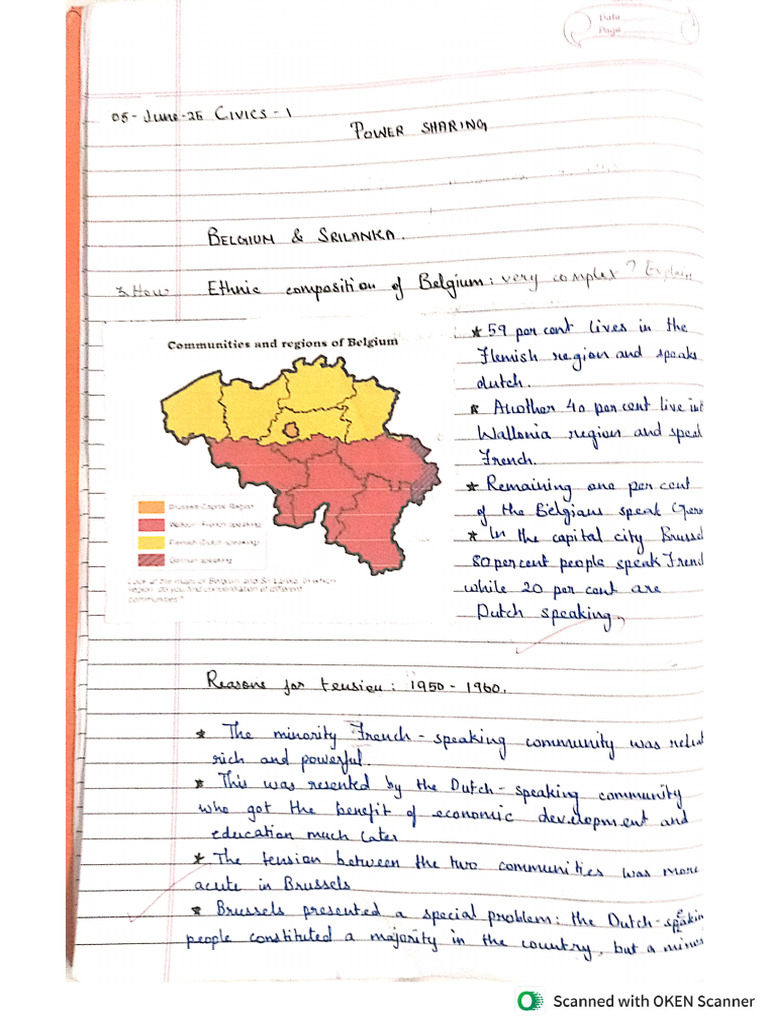 Date
Page
05-June-25 CIVICS-1
POWER SHARING
BELGIUM & SRILANKA.
* How Ethnic composition of Belgium: very complex? Explain
Communities and regions of Belgium
Brussels-Capital Region
Walloon (French-speaking)
Flemish (Dutch-speaking)
German-speaking
Look at the maps of Belgium and Sri Lanka. In which
region, do you find concentration of different
communities?
* 59 per cent lives in the
Flemish region and speaks
dutch.
* Another 40 per cent live in
Wallonia region and speak
French.
* Remaining one per cent
of the Belgians speak Ger
* In the capital city Brussel
80 per cent people speak Fren
while 20 per cent are
Dutch speaking.
Reasons for tension: 1950-1960.
* The minority French-speaking community was relat
rich and powerful.
* This was resented by the Dutch-speaking community
who got the benefit of economic development and
education much later
* The tension between the two communities was more
acute in Brussels
* Brussels presented a special problem: the Dutch-speakin
people constituted a majority in the country, but a minor
Scanned with OKEN Scanner